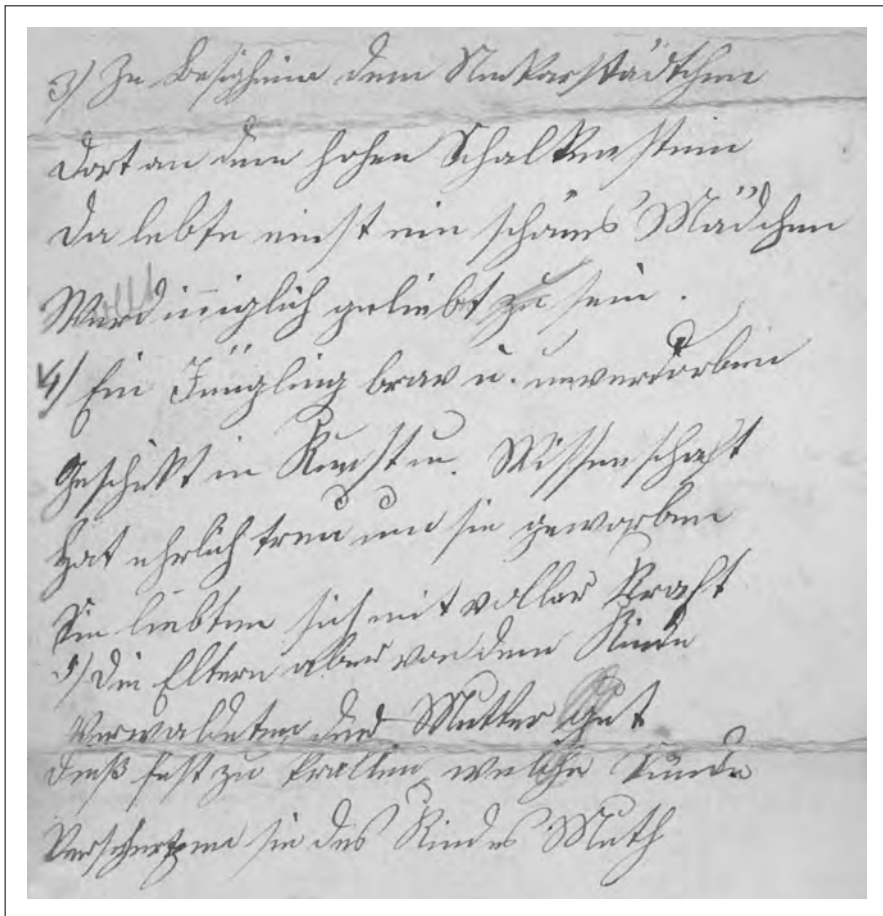 3) Zu Besigheim dem Neckarstädtchen
dort an dem hohen Schalkenstein
da lebte einst ein schönes Mädchen
Werd inniglich geliebt zu sein.
4) Ein Jüngling brav u. unverdorben
Geschikt in Kunst u. Wissenschaft
Hat ehrlich treu um sie geworben
Sie liebten sich mit voller Kraft
5) Die Eltern aber von dem Kinde
Verwaldeten der Mutter Gut
dieß fest zu krallen welche Sünde
Verscherzen sie des Kindes Muth